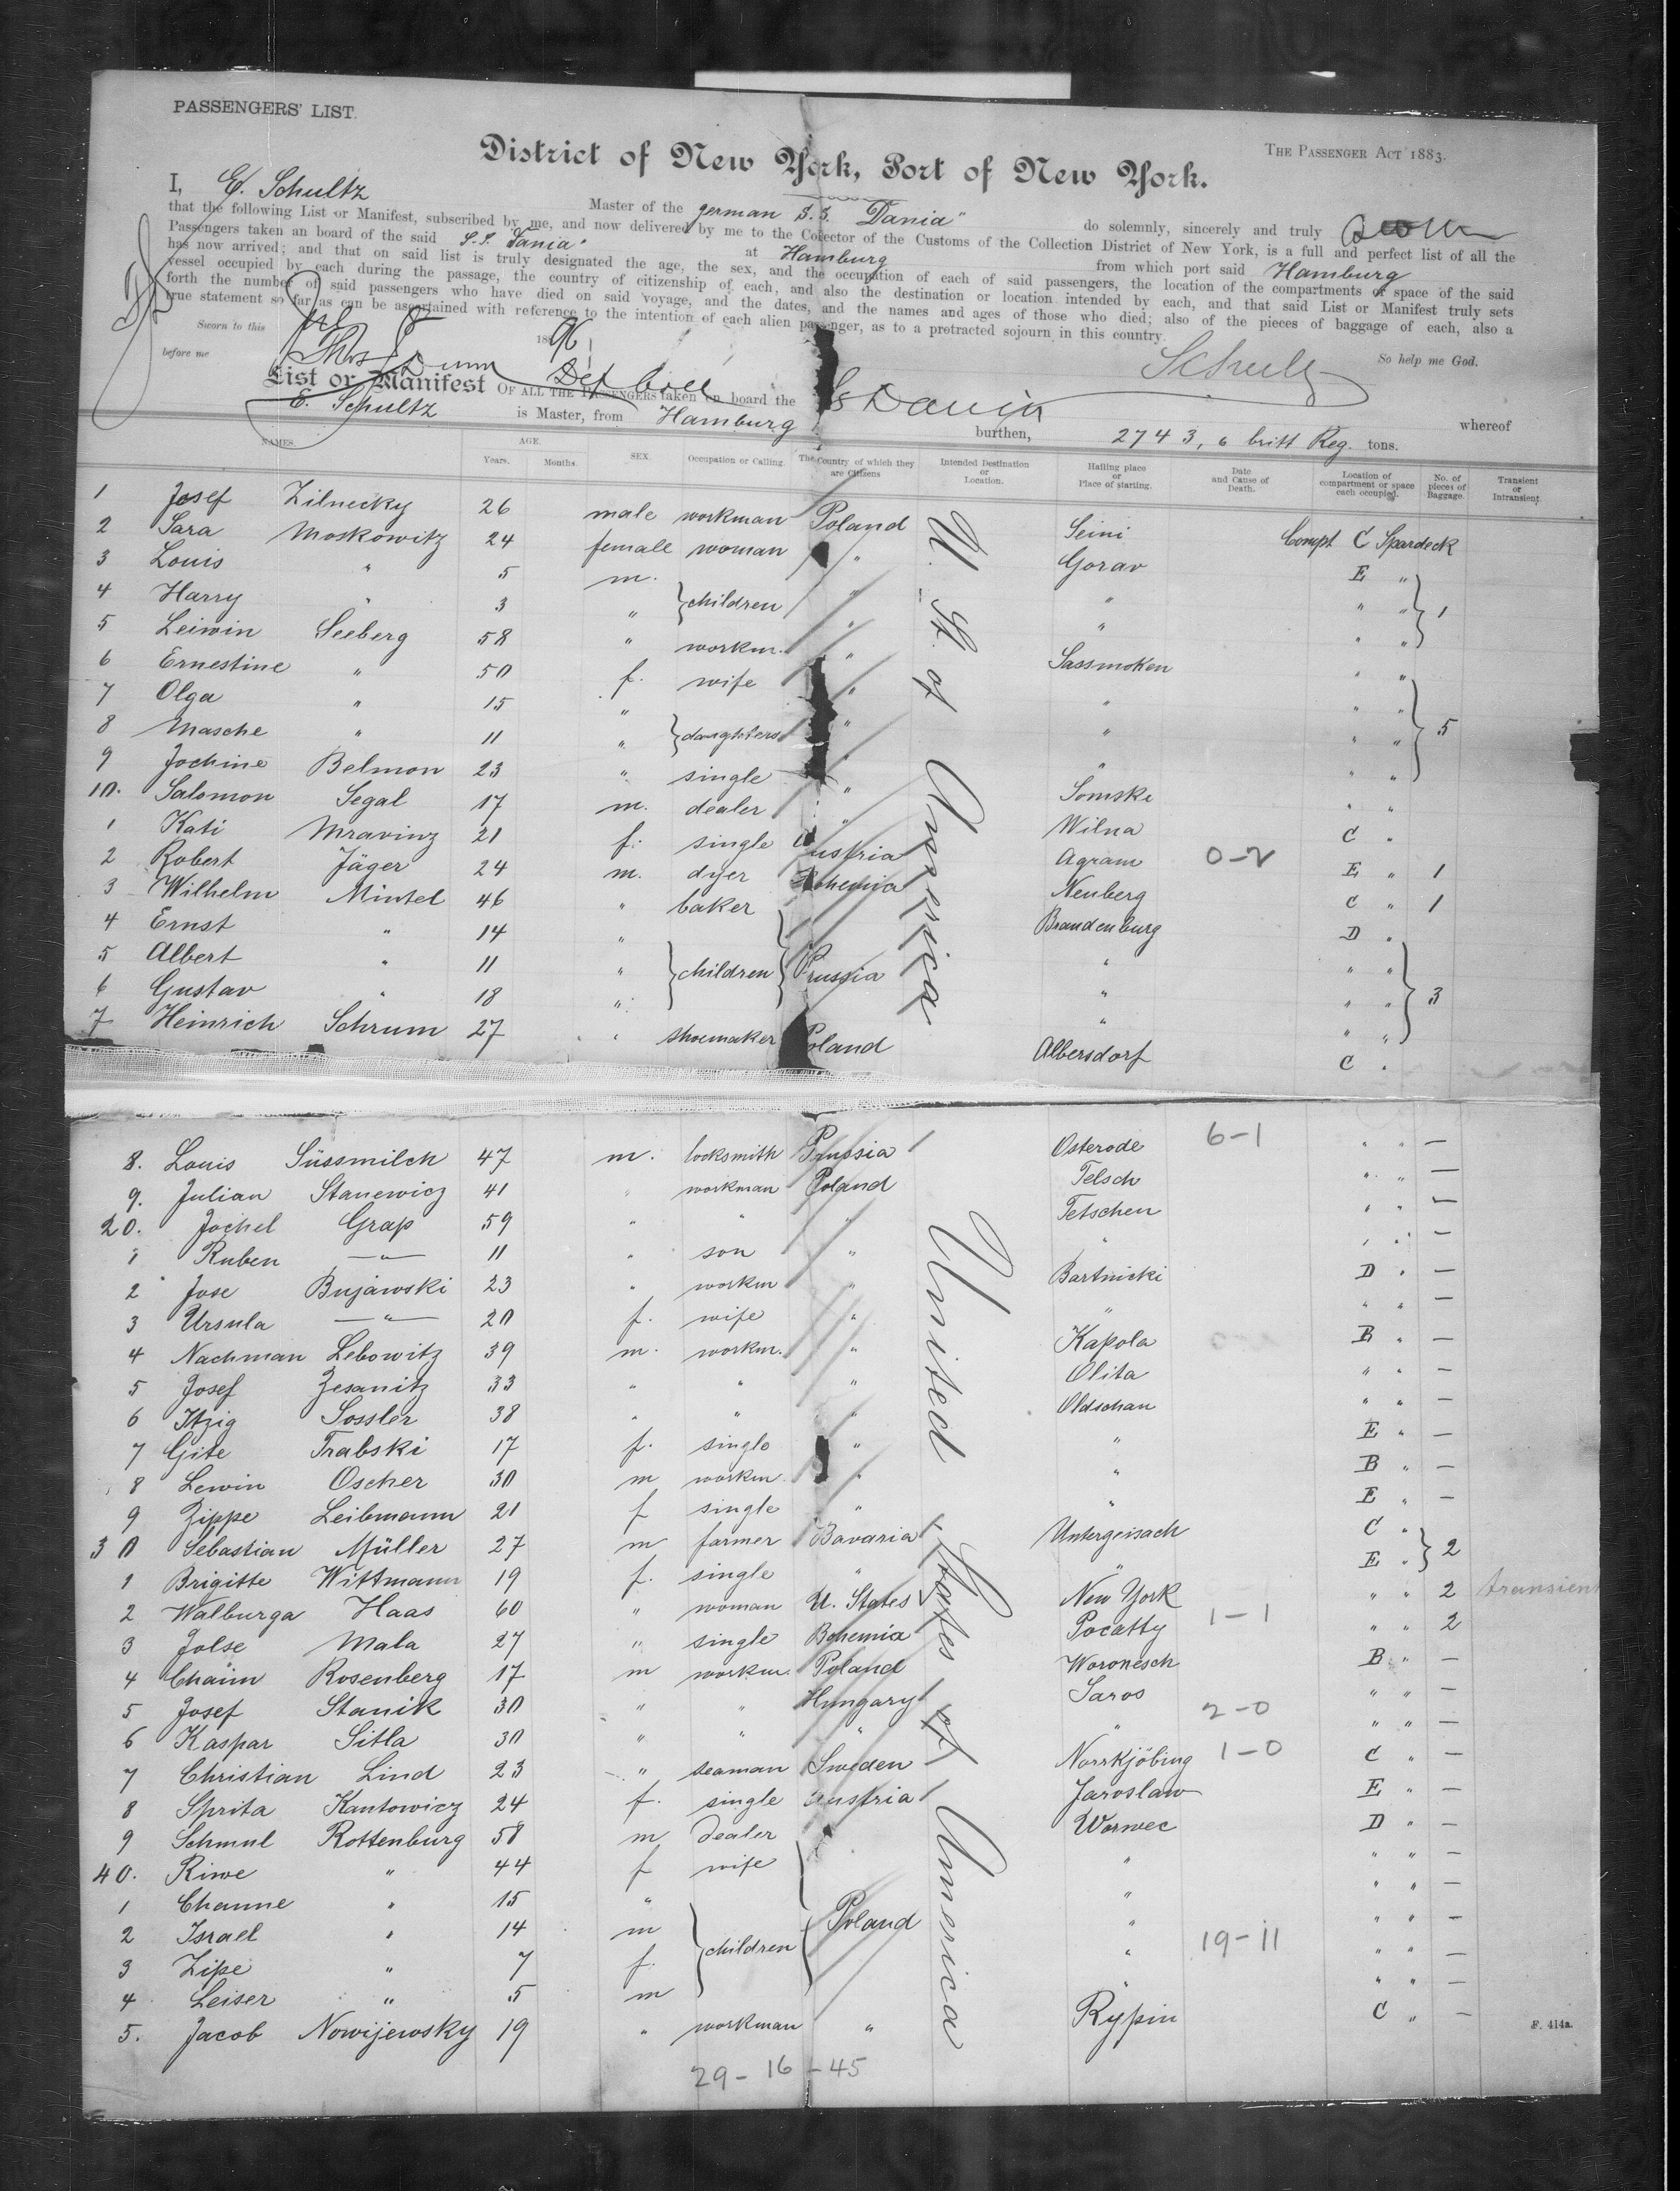 PASSENGERS' LIST.
THE PASSENGER ACT 1883.
District of New York, Port of New York.
I, E. Schultz Master of the german S.S. "Dania" do solemnly, sincerely and truly
that the following List or Manifest, subscribed by me, and now delivered by me to the Collector of the Customs of the Collection District of New York, is a full and perfect list of all the
Passengers taken an board of the said S.S. "Dania" at Hamburg from which port said Hamburg
has now arrived; and that on said list is truly designated the age, the sex, and the occupation of each of said passengers, the location of the compartments or space of the said
vessel occupied by each during the passage, the country of citizenship of each, and also the destination or location intended by each, and that said List or Manifest truly sets
forth the number of said passengers who have died on said voyage, and the dates, and the names and ages of those who died; also of the pieces of baggage of each, also a
true statement so far as can be ascertained with reference to the intention of each alien passenger, as to a protracted sojourn in this country.
Sworn to this 1896 So help me God.
before me Thos Dunn Dep Coll Schultz
List or Manifest OF ALL THE PASSENGERS taken on board the Ss Dania whereof
E. Schultz is Master, from Hamburg burthen, 2743, 6 britt Reg. tons.
NAMES. AGE. Years. Months. SEX. Occupation or Calling. The Country of which they are Citizens Intended Destination or Location. Hailing place or Place of starting. Date and Cause of Death. Location of compartment or space each occupied. No. of pieces of Baggage. Transient or Intransient.
U. St. of America
1 Josef Zilnecky 26 male workman Poland Seini Compt C Spardeck
2 Sara Moskowitz 24 female woman " Gorav E "
3 Louis " 5 m. children " " " " 1
4 Harry " 3 " " " " "
5 Leiwin Seeberg 58 " workm. " Sassmoken " "
6 Ernestine " 50 f. wife " " " "
7 Olga " 15 " daughters " " " " 5
8 Masche " 11 " " " "
9 Jochine Belmon 23 " single " Somske " "
10. Salomon Segal 17 m. dealer " Wilna C "
1 Kati Mravinz 21 f. single Austria Agram 0-2 E " 1
2 Robert Jäger 24 m. dyer Bohemia Neuberg C " 1
3 Wilhelm Mintel 46 " baker Brandenburg D "
4 Ernst " 14 " " " "
5 Albert " 11 " children Prussia " " " 3
6 Gustav " 18 " " " "
7 Heinrich Schrum 27 " shoemaker Poland Albersdorf C "
United States of America
8. Louis Süssmilch 47 m. locksmith Prussia Osterode 6-1 " " —
9. Julian Stanewicz 41 " workman Poland Telsch " " —
20. Jochel Grap 59 " " " Tetschen " " —
1 Ruben — " — 11 " son " " " " —
2 Jose Bujawski 23 " workm " Bartnicki D " —
3 Ursula — " — 20 f. wife " " " " —
4 Nachman Lebowitz 39 m. workm. " Kapola B " —
5 Josef Zesanitz 33 " " " Olita " " —
6 Itzig Sossler 38 " " " Oldschan " " —
7 Gite Trabski 17 f. single " " E " —
8 Lewin Oscher 30 m workm. " " B " —
9 Zippe Leibmann 21 f single " " E " —
30 Sebastian Müller 27 m farmer Bavaria Untergeisach C "
1 Brigitte Wittmann 19 f. single " " E " 2
2 Walburga Haas 60 " woman U. States New York " " 2 transient
3 Jolse Mala 27 " single Bohemia Pocatty 1-1 " " 2
4 Chaim Rosenberg 17 m workm. Poland Woronesch B " —
5 Josef Stanik 30 " " Hungary Saros " " —
6 Kaspar Sitla 30 " " " " 2-0 " " —
7 Christian Lind 23 " seaman Sweden Norrkjöbing 1-0 C " —
8 Sprita Kantowicz 24 f. single Austria Jaroslaw E " —
9 Schmul Rottenburg 58 m dealer Worwec D " —
40. Riwe " 44 f wife " " " —
1 Channe " 15 " " " " —
2 Israel " 14 m children Poland " " " —
3 Zipe " 7 f. " 19-11 " " —
4 Leiser " 5 m " " " —
5. Jacob Nowijewsky 19 " workman " Rypin C " —
F. 414a.
29-16-45